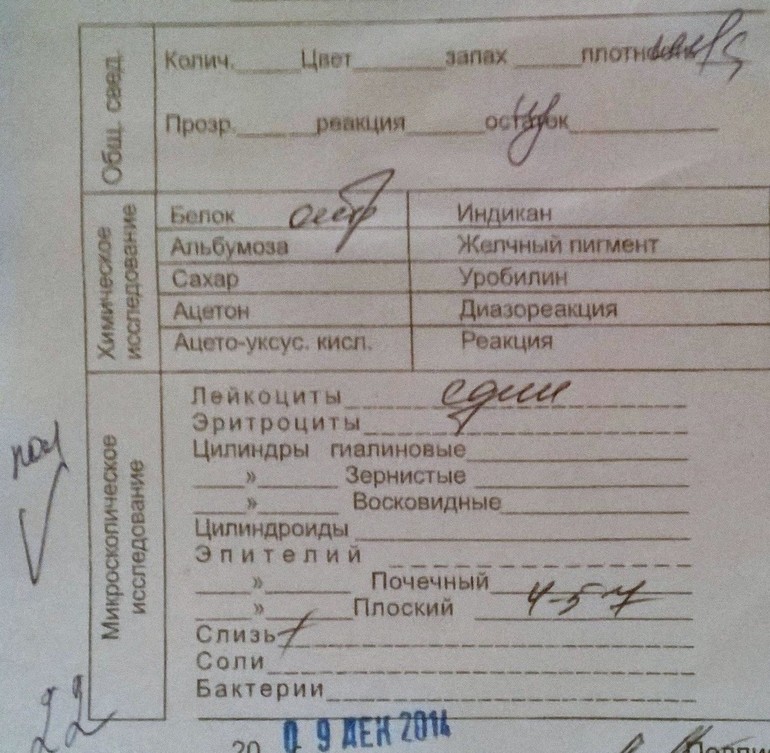 Общ. свед.
Колич. Цвет запах плотн
Прозр. реакция остаток
Химическое исследование
Белок отр Индикан
Альбумоза Желчный пигмент
Сахар Уробилин
Ацетон Диазореакция
Ацето-уксус. кисл. Реакция
Микроскопическое исследование
Лейкоциты един
Эритроциты
Цилиндры гиалиновые
» Зернистые
» Восковидные
Цилиндроиды
Эпителий
» Почечный
» Плоский 4-5-7
Слизь +
Соли
Бактерии
22
20 09 ДЕК 2014